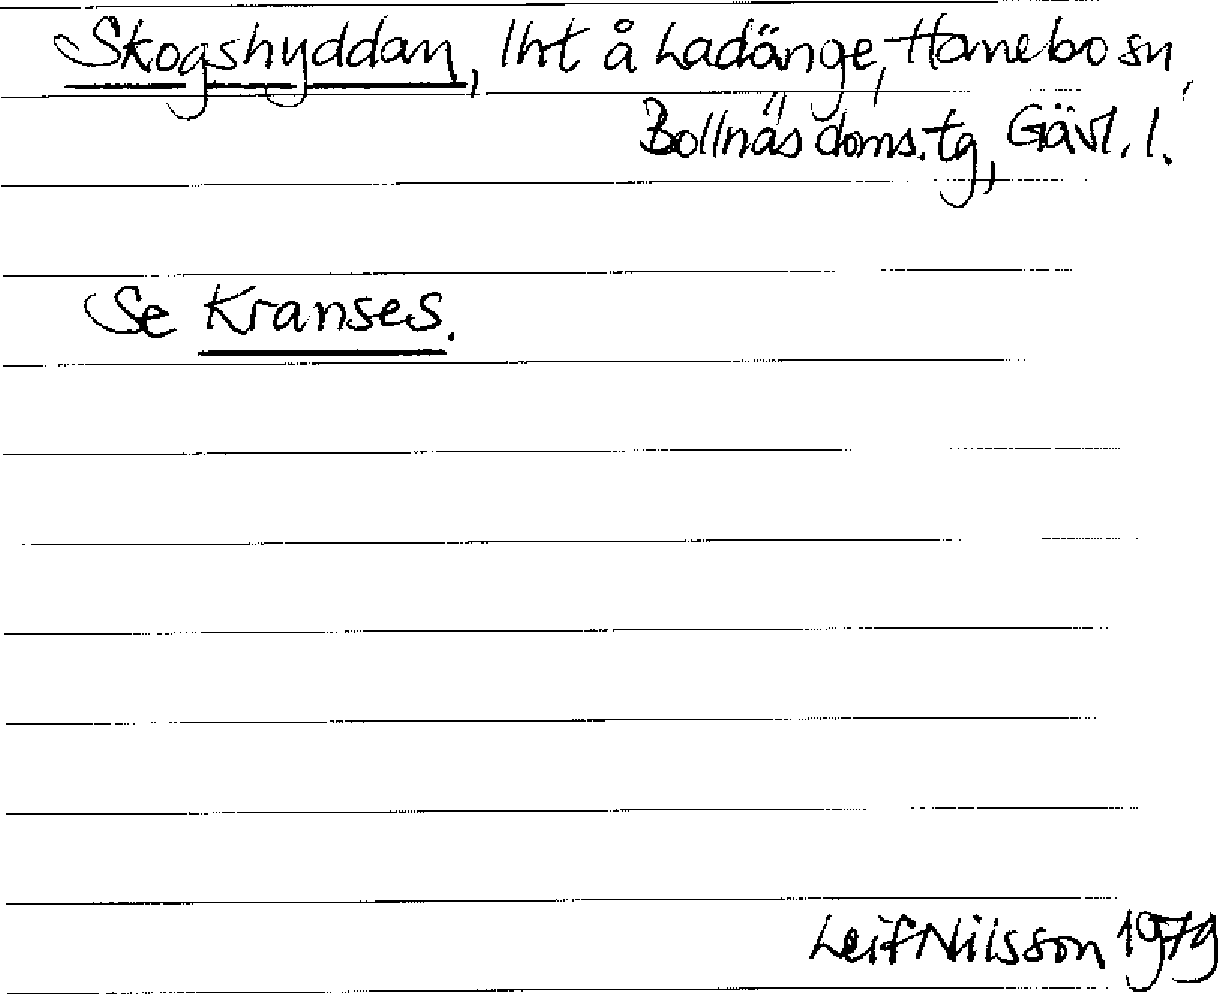 Skogshyddan, lht å Ladänge, Hanebo sn,
Bollnäs doms. tg, Gävl. l.
Se Kranses.
Leif Nilsson 1979